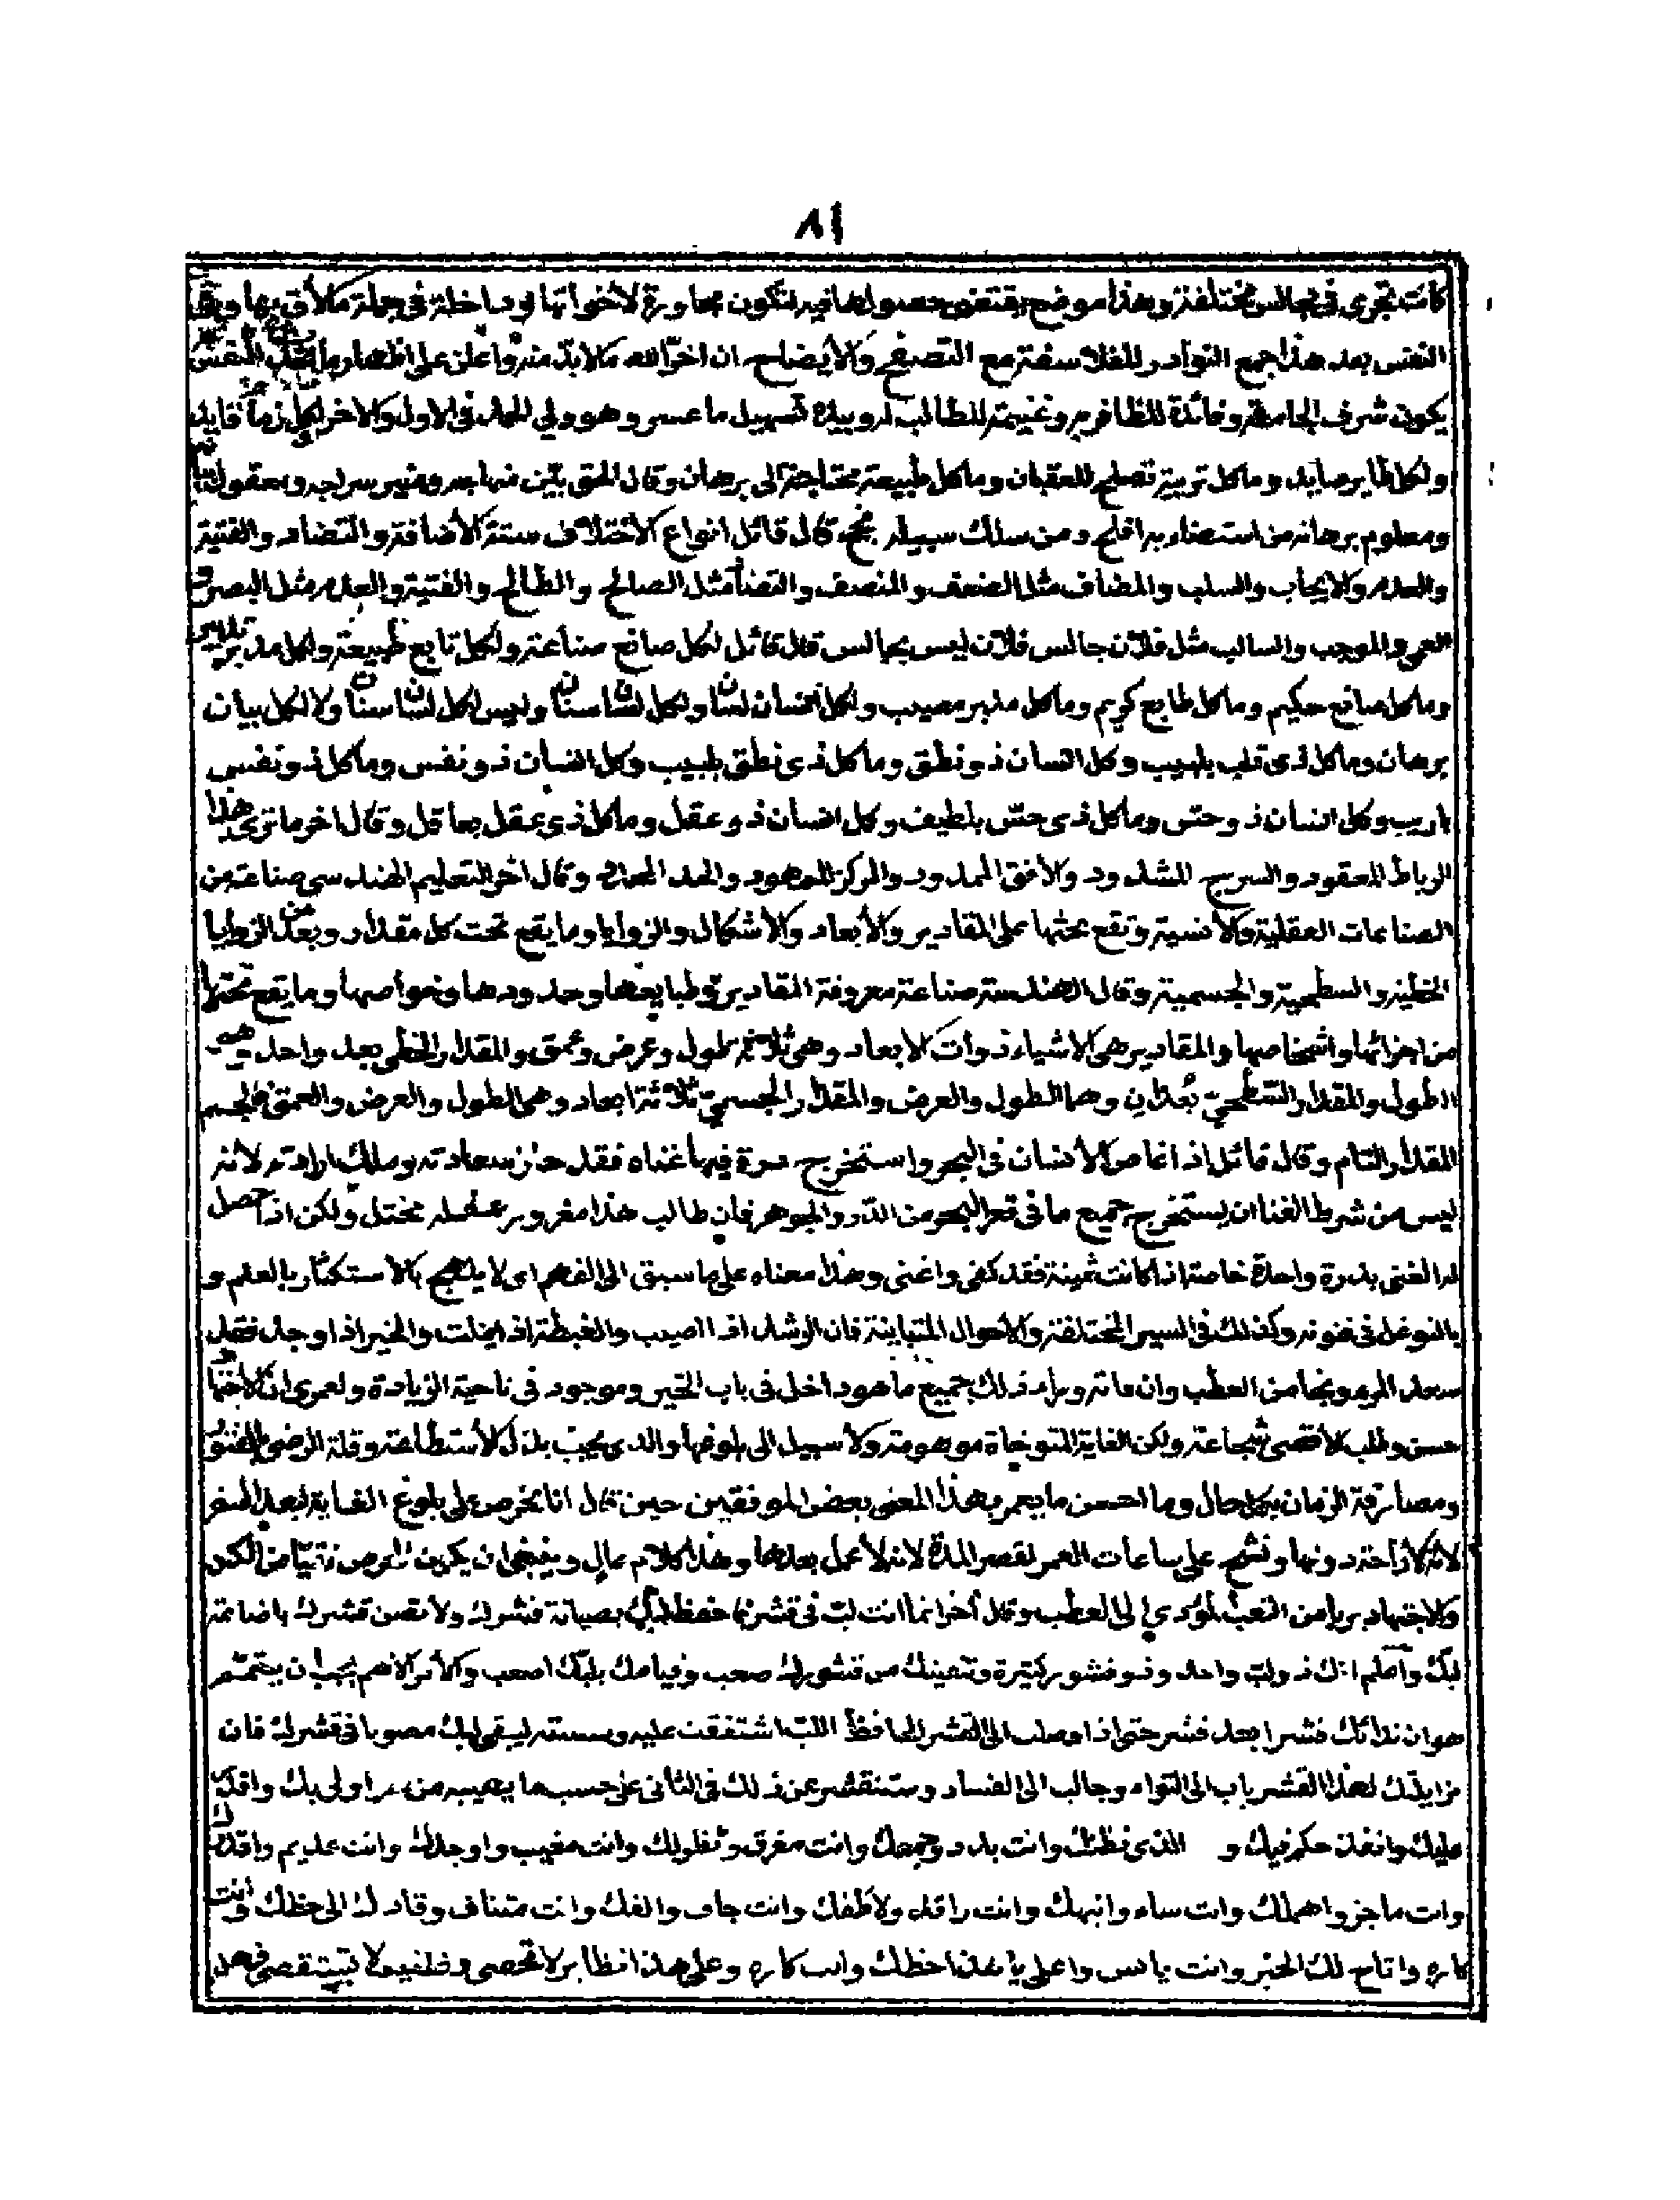 ٨١
كانت تجرى فى مجالس مختلفة وهذا موضع يقتضى حصولها فيه لتكون مجاورة لاخواتها وداخلة فى جملة
النفس بعد هذا جمع النوادر للفلاسفة مع التصفح والايضاح ان اخر الله مالا بد منه واعان على اظهار ما النفس
يكون شرف الجامعة وفائدة للظافر به وغنيمة للطالب له وبيده تسهيل ما عسر وهو ولى الحمد فى الاول والاخر لكل قايد
ولكل طاير صايد وما كل تربية تصلح للعقبان وما كل طبيعة محتاجة الى برهان وقال الحق بين منهاجه ومنير سراجه ومعقول
ومعلوم برهانه من استضاء به افلح ومن سلك سبيله نجح قال قائل انواع الاختلاف ستة الاضافة والتضاد والقنية
والعدم والايجاب والسلب والمضاف مثل الضعف والنصف والتضاد مثل الصالح والطالح والقنية والعدم مثل البصر و
العمى والموجب والسالب مثل فلان جالس فلان ليس بجالس قال قائل لكل صانع صناعة ولكل تابع طبيعة ولكل مدبر تدبير
وما كل صانع حكيم وما كل طابع كريم وما كل مدبر مصيب ولكل انسان لسان ولكل لسان اسنان وليس لكل لسان اسنان ولا لكل بيان
برهان وما كل ذى قلب بلبيب وكل انسان ذو نطق وما كل ذى نطق بلبيب وكل انسان ذو نفس وما كل ذو نفس
باريب وكل انسان ذو حس وما كل ذى حس بلطيف وكل انسان ذو عقل وما كل ذى عقل بعاقل وقال اخر ما ترى هذا
الرباط المعقود والسرج المشدود والافق الممدود والمركز المعهود والحد المحدود وقال اخر التعليم الهندسى صناعة من
الصناعات العقلية والانسية وتقع بحثها على المقادير والابعاد والاشكال والزوايا وما يقع تحت كل مقدار وبعد من الزوايا
الخطية والسطحية والجسمية وقال الهندسة صناعة معروفة المقادير وطبايعها وحدودها وخواصها وما يقع تحتها
من اجزائها واشخاصها والمقادير هى الاشياء ذوات الابعاد وهى ثلاثة طول وعرض وعمق والمقدار الخطى بعد واحد وهو
الطول والمقدار السطحى بعدان وهما الطول والعرض والمقدار الجسمى ثلاثة ابعاد وهى الطول والعرض والعمق فالجسم
المقدار التام وقال قائل اذا غاص الانسان فى البحر واستخرج درة فيها غناه فقد حاز سعادته وملك ارادته لانه
ليس من شرط الغنا ان يستخرج جميع ما فى قعر البحر من الدر والجوهر فان طالب هذا مغرور عقله مختل ولكن اذا حصل
له الغنى بدرة واحدة خاصة اذا كانت ثمينة فقد كفى واغنى وهذا معناه على ما سبق الى الفهم اى لا يلهج بالاستكثار بالعلم و
بالتوغل فى فنونه وكذلك فى السير المختلفة والاحوال المتباينة فان الرشد اذا اصيب والغبطة اذا نيلت والخير اذا وجد فقد
سعد المرء ونجا من العطب وان فاته وراء ذلك جميع ما هو داخل فى باب الخير وموجود فى ناحية الزيادة ولعمرى ان الاجتهاد
حسن وطلب الاقصى شجاعة ولكن الغاية المتوخاة موهومة ولا سبيل الى بلوغها والذى يجب بذل الاستطاعة وقلة الرضى
ومصارفة الزمان بكل حال وما احسن ما يعبر بهذا المعنى بعض الموفقين حين قال انا نحرص على بلوغ الغاية لبعد السفر
لانه لا راحة دونها ونشح على ساعات العمر لقصر المدة لانه لا عمل بعدها وهذا كلام عال وينبغى ان يكون الحرص نقيا من الكد
والاجتهاد بريا من التعب المؤدى الى العطب وقال آخر انما انت لب فى قشر فاحفظ لبك بصيانة قشرك ولا تصن قشرك باضاعة
لبك واعلم انك ذو لب واحد وذو قشور كثيرة وتنقيتك من قشورك صعب وقيامك بلبك اصعب والامر الاهم يجب ان يتمم
هو ان قشرا بعد قشر حتى اذا وصلت الى القشر الحافظ اللب اشتفقت عليه ليبقى لبك مصونا فى قشرك فان
مزايلتك لهذا القشر باب الى التواء وجالب الى الفساد وستنقشر عن ذلك فى الثانى على حسب ما يصيبه من اولى بك واقدر
عليك وانفذ حكم فيك و الذى نظمك وانت بدد وجمعك وانت مفرق وانت مغيب واوجدك وانت عديم واقدرك
وانت عاجز واهملك وانت ساه وانبهك وانت راقد ولاطفك وانت جاف والفك وانت متناف وقادك الى حظك وانت
كاره واتاح لك الخير وانت يائس وعلى هذا نظاير لا تحصى